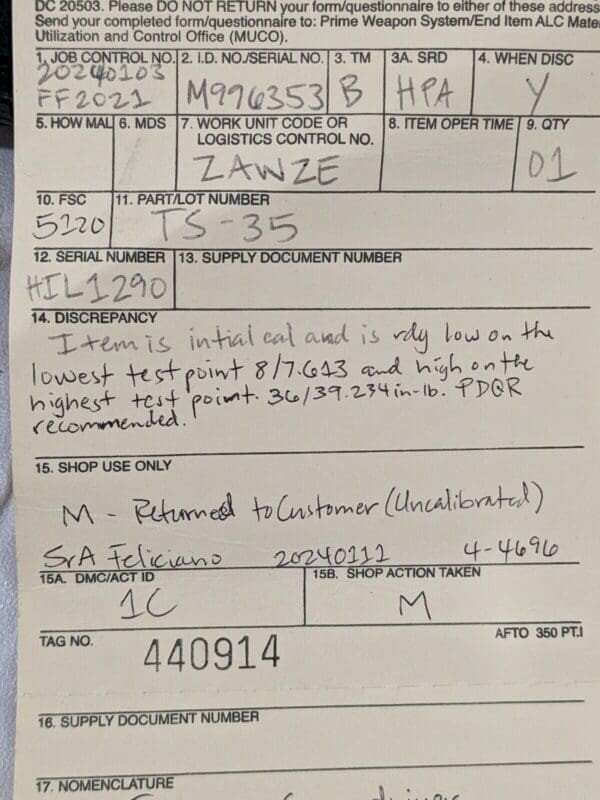 DC 20503. Please DO NOT RETURN your form/questionnaire to either of these address
Send your completed form/questionnaire to: Prime Weapon System/End Item ALC Mate
Utilization and Control Office (MUCO).
1. JOB CONTROL NO. 2. I.D. NO./SERIAL NO. 3. TM 3A. SRD 4. WHEN DISC
20240103
FF2021 M996353 B HPA Y
5. HOW MAL 6. MDS 7. WORK UNIT CODE OR LOGISTICS CONTROL NO. 8. ITEM OPER TIME 9. QTY
ZAWZE 01
10. FSC 11. PART/LOT NUMBER
5120 TS-35
12. SERIAL NUMBER 13. SUPPLY DOCUMENT NUMBER
HIL1290
14. DISCREPANCY
Item is intial cal and is rdg low on the
lowest test point 8/7.613 and high on the
highest test point. 36/39.234in-lb. PDQR
recommended.
15. SHOP USE ONLY
M - Returned to Customer (Uncalibrated)
SrA Feliciano 20240112 4-4696
15A. DMC/ACT ID 15B. SHOP ACTION TAKEN
1C M
TAG NO. 440914 AFTO 350 PT.I
16. SUPPLY DOCUMENT NUMBER
17. NOMENCLATURE